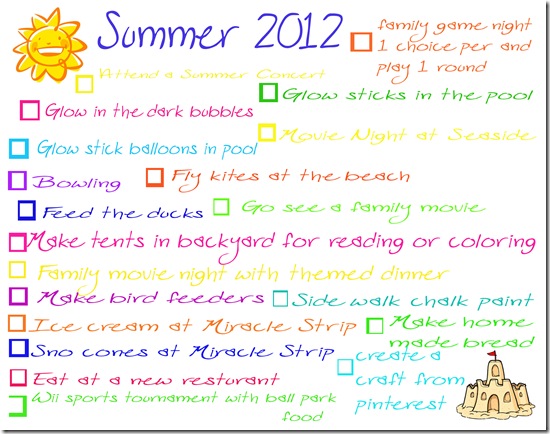 Summer 2012
family game night
1 choice per and
play 1 round
Attend a Summer Concert
Glow sticks in the pool
Glow in the dark bubbles
Movie Night at Seaside
Glow stick balloons in pool
Bowling
Fly kites at the beach
Feed the ducks
Go see a family movie
Make tents in backyard for reading or coloring
Family movie night with themed dinner
Make bird feeders
Side walk chalk paint
Ice cream at Miracle Strip
Make home
made bread
Sno cones at Miracle Strip
create a
craft from
pinterest
Eat at a new resturant
Wii sports tournament with ball park
food